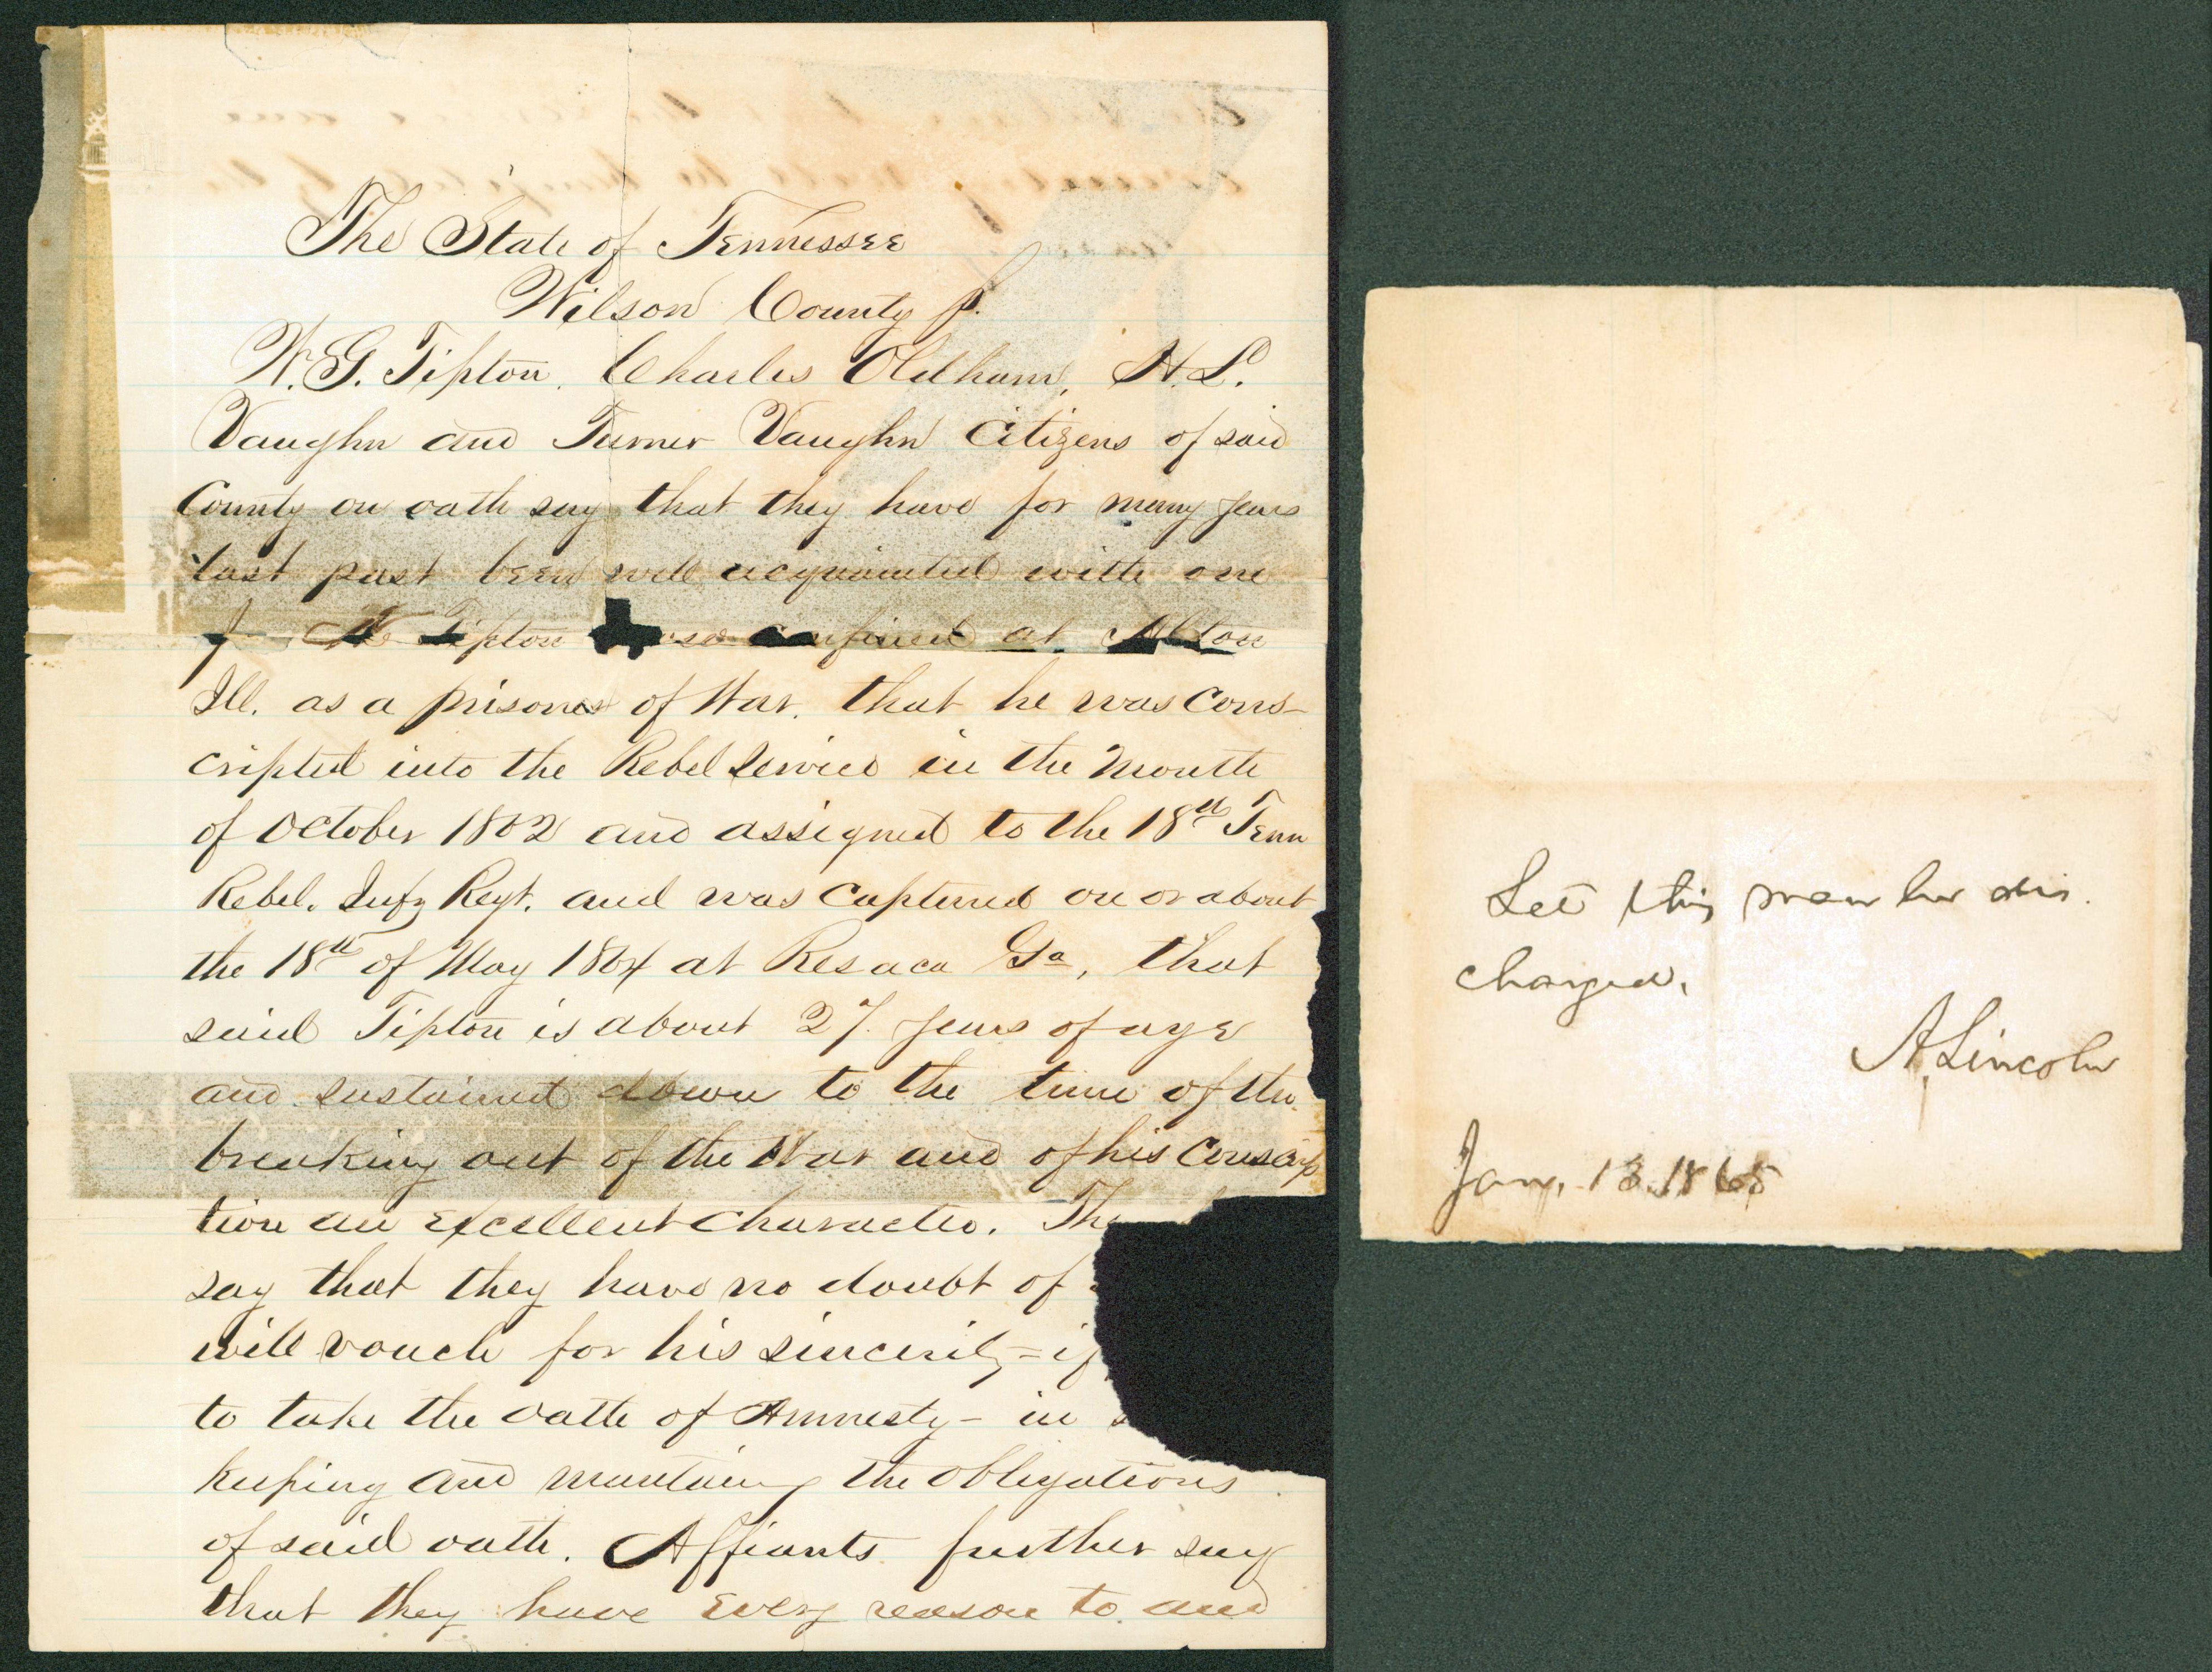 The State of Tennessee
Wilson County
W. G. Tipton, Charles Oldham, H. L.
Vaughn and Turner Vaughn Citizens of said
County on oath say that they have for many years
last past been well acquainted with one
J. Tipton confined at Alton
Ill. as a prisoner of War. that he was Cons-
cripted into the Rebel Service in the Month
of October 1862 and assigned to the 18th Tenn
Rebel. Infy Regt. and was Captured on or about
the 18th of May 1864 at Resaca Ga, that
said Tipton is about 27 years of age
and sustained down to the time of the
breaking out of the War and of his Conscrip
tion an excellent character. The
say that they have no doubt of
will vouch for his sincerity - if
to take the oath of Amnesty - in
keeping and mantaing the obligations
of said oath. Affiants further say
that they have every reason to and
Let this man be dis.
charged.
A. Lincoln
Jan. 13. 1865